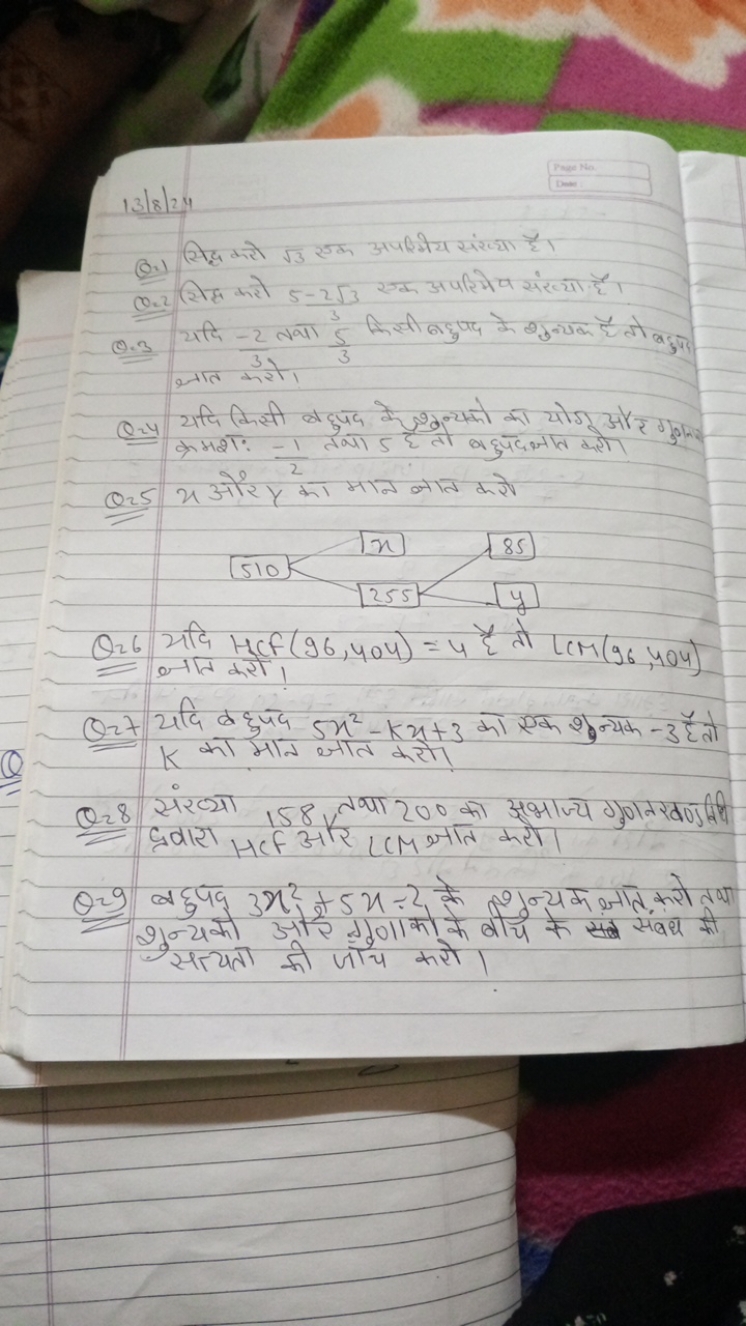 Page No.
Date :
13/8/24
Q.1 सिद्ध करो √3 एक अपरिमेय संख्या है।
Q.2 सिद्ध करो 5-2√3 एक अपरिमेय संख्या है।
3
Q.3 यदि -2/3 तथा 5/3 किसी बहुपद के शुन्यक है तो बहुपद
ज्ञात करो।
Q.4 यदि किसी बहुपद के शुन्यको का योग और
क्रमशः -1/2 तथा 5 है तो बहुपद ज्ञात करो।
Q.5 x और y का मान ज्ञात करो
x 85
510
255 y
Q.6 यदि HCF(96,404) = 4 है तो LCM(96,404)
ज्ञात करो।
Q.7 यदि बहुपद 5x² - Kx+3 का एक शुन्यक -3 है तो
K का मान ज्ञात करो।
Q.8 संख्या 158, तथा 200 का अभाज्य गुणनखण्ड विधि
द्वारा HCF और LCM ज्ञात करो।
Q.9 बहुपद 3x² + 5x - 2 के शुन्यक ज्ञात करो तथा
शुन्यको और गुणाको के बीच के संबंध की
सत्यता की जाँच करो।
Q